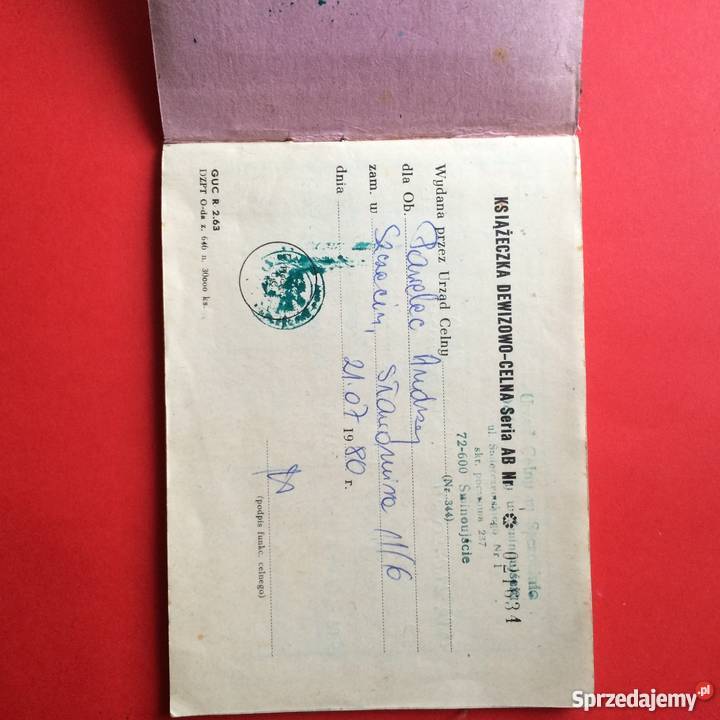 KSIĄŻECZKA DEWIZOWO-CELNA Seria AB Nr 021634
Urząd Celny w Szczecinie
ul. Nr 1
skr. pocztowa 237
72-600 Świnoujście
Wydana przez Urząd Celny
(Nr 344)
dla Ob. Pawelec Andrzej
zam. w Szczecin, 11/6
dnia 21.07 1980 r.
(podpis funkc. celnego)
GUC R 2.63
DZPT O-da z. 646 n. 30000 ks.
Sprzedajemy.pl